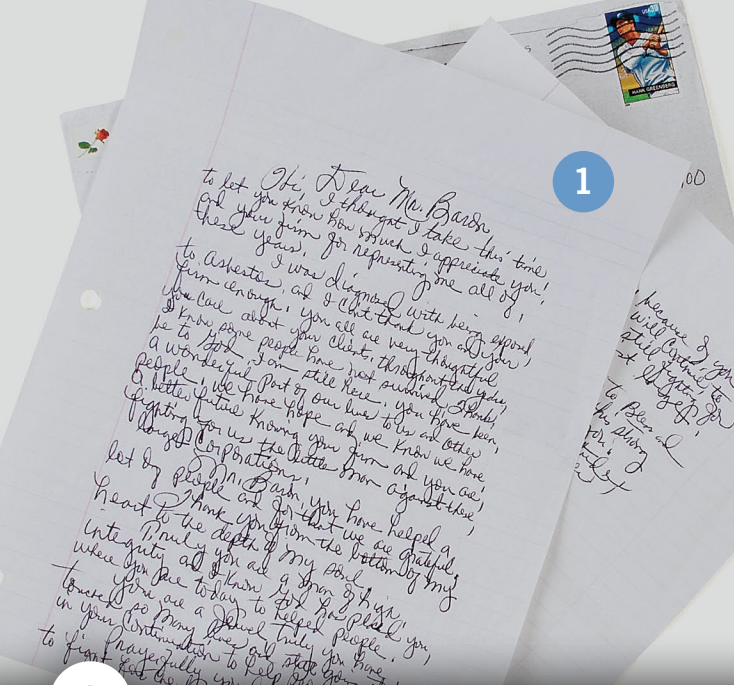 USA
HANK GREENBERG
1
Dear Mr. Baron
Hi, I thought I take this time
to let you know how much I appreciate you,
and your firm for representing me all of
these years.
I was diagnosed with being exposed
to asbestos, and I can't thank you and your
firm enough, you all are very thoughtful
you care about your clients, throughout the years,
I know some people have not survived, thanks
be to God, I am still here. You have been,
a wonderful part of our lives to us and other
people, we have hope and we know we have
a better future knowing your firm and you are,
fighting for us the little man against these
larger Corporations.
Mr. Baron, you have helped a
lot of people and for that we are grateful,
Thank you from the bottom of my
heart to the depth of my soul
Truly you are a man of high,
integrity and I know God has placed you,
where you are today to helped people.
You are a Jewel truly you have,
touched so many lives and still
in your Continuation to help
Prayerfully you
to fight
because of you
will Continue to
still fighting for
to Bless all
this strong